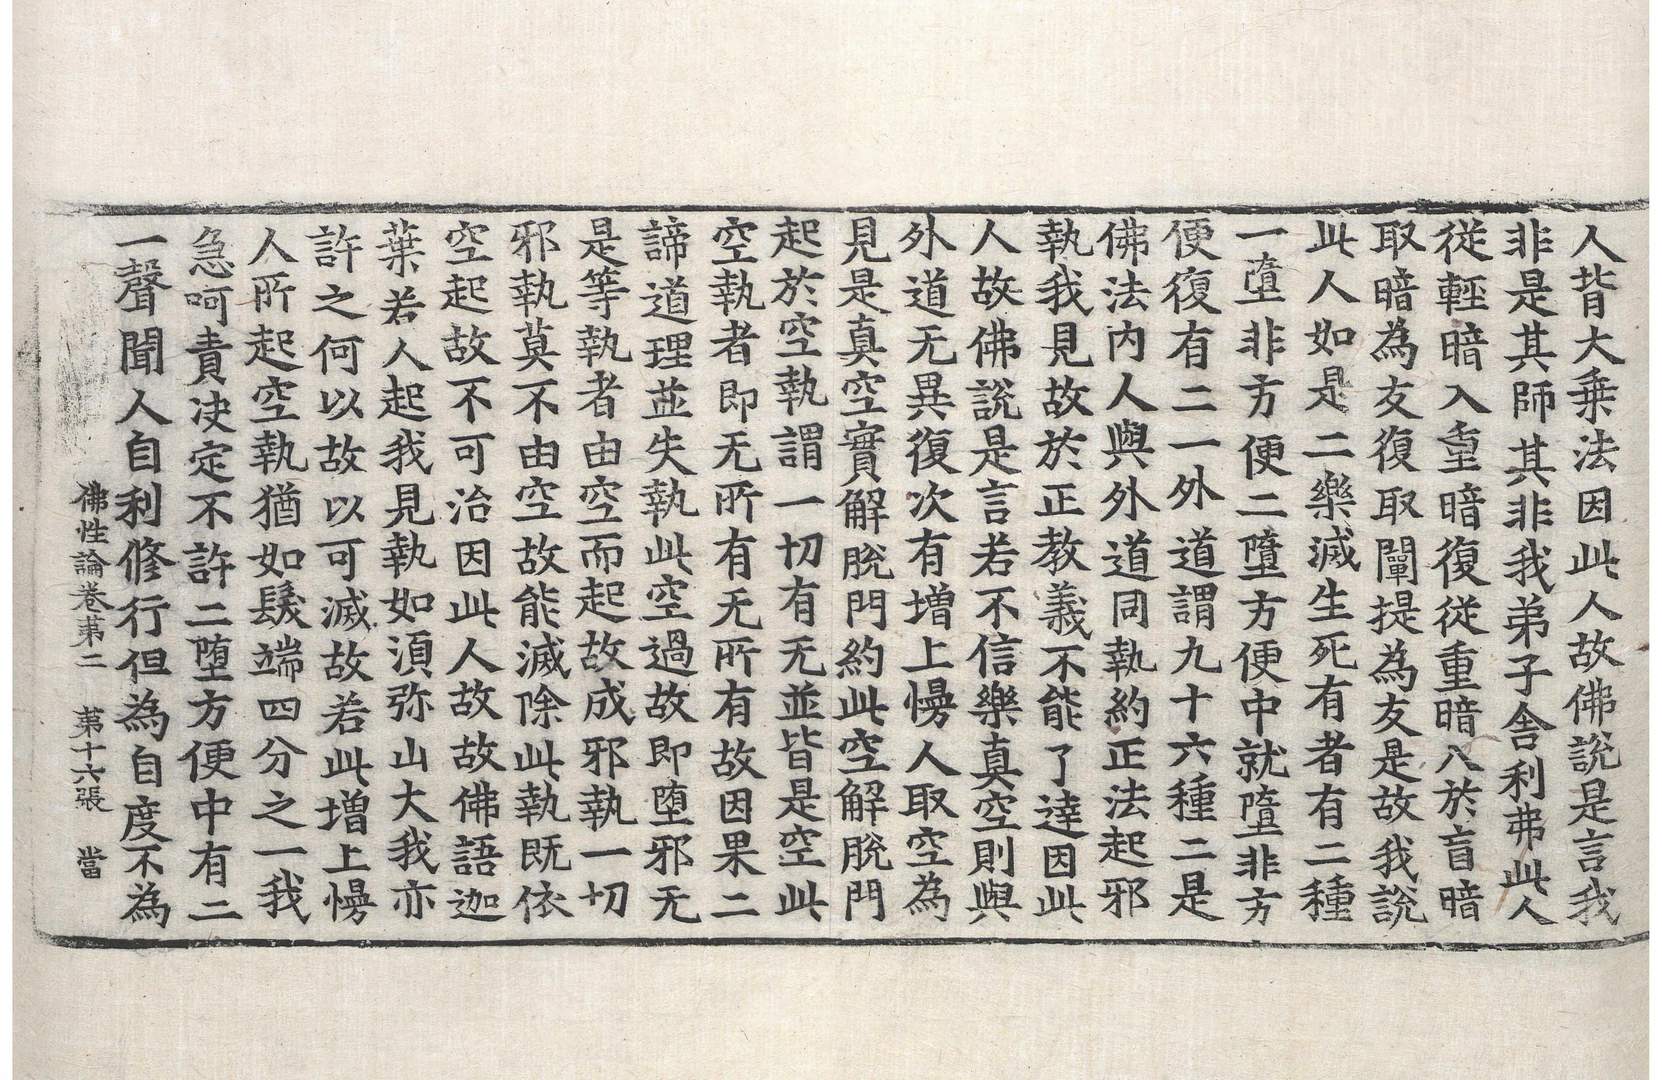 人背大乗法因此人故佛說是言我
非是其師其非我弟子舎利弗此人
従輕暗入重暗復従重暗入於盲暗
取暗為友復取闡提為友是故我說
此人如是二樂滅生死有者有二種
一墮非方便二墮方便中就墮非方
便復有二一外道謂九十六種二是
佛法内人與外道同執約正法起邪
執我見故於正教義不能了達因此
人故佛說是言若不信樂真空則與
外道无異復次有增上慢人取空為
見是真空實解脫門約此空解脫門
起於空執謂一切有无並皆是空此
空執者即无所有无所有故因果二
諦道理並失執此空過故即堕邪无
是等執者由空而起故成邪執一切
邪執莫不由空故能滅除此執既依
空起故不可治因此人故故佛語迦
葉若人起我見執如湏弥山大我亦
許之何以故以可滅故若此增上慢
人所起空執猶如髮端四分之一我
急呵責决定不許二堕方便中有二
一聲聞人自利修行但為自度不為
佛性論卷苐二　苐十六張　當